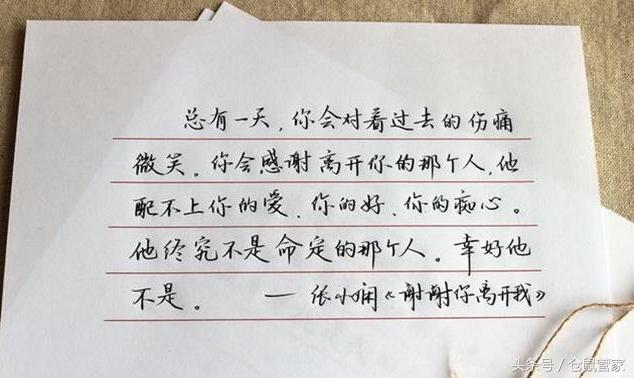 总有一天,你会对着过去的伤痛
微笑。你会感谢离开你的那个人,他
配不上你的爱、你的好、你的痴心。
他终究不是命定的那个人。幸好他
不是。 — 张小娴《谢谢你离开我》
头条号/仓鼠管家